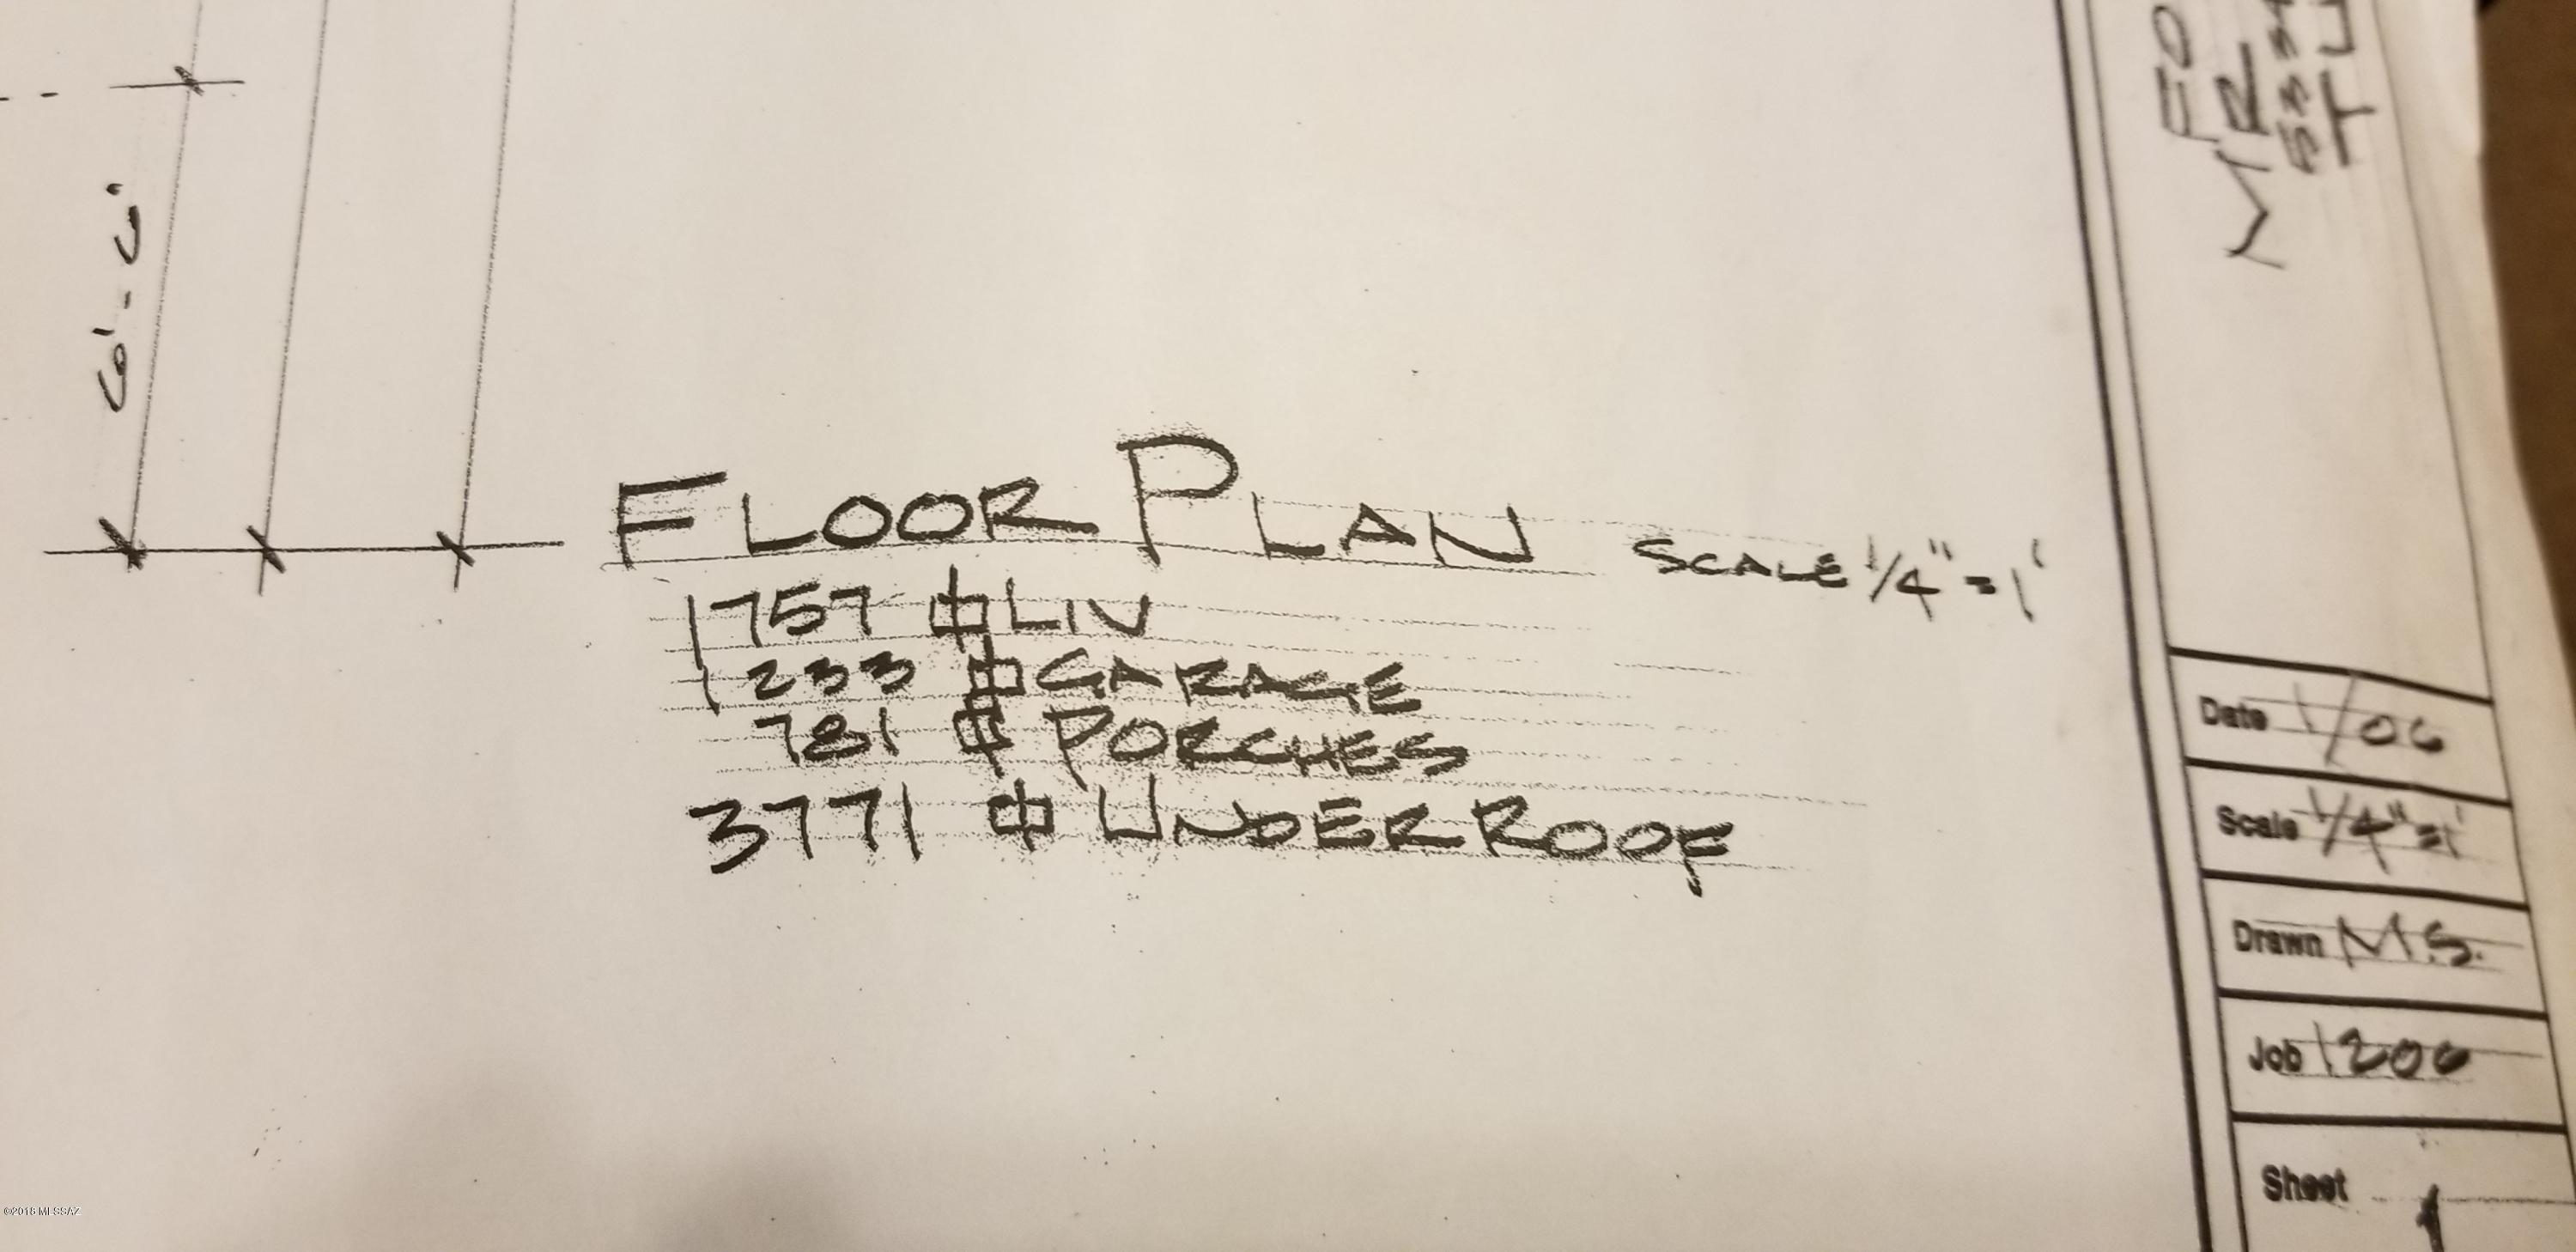 6'-6"
FLOOR PLAN SCALE 1/4"=1'
1757 ⏍ LIV
1233 ⏍ GARAGE
781 ⏍ PORCHES
3771 ⏍ UNDER ROOF
MR
Date 1/06
Scale 1/4"=1'
Drawn M.S.
Job 1206
Sheet 1
©2018 MLSSAZ